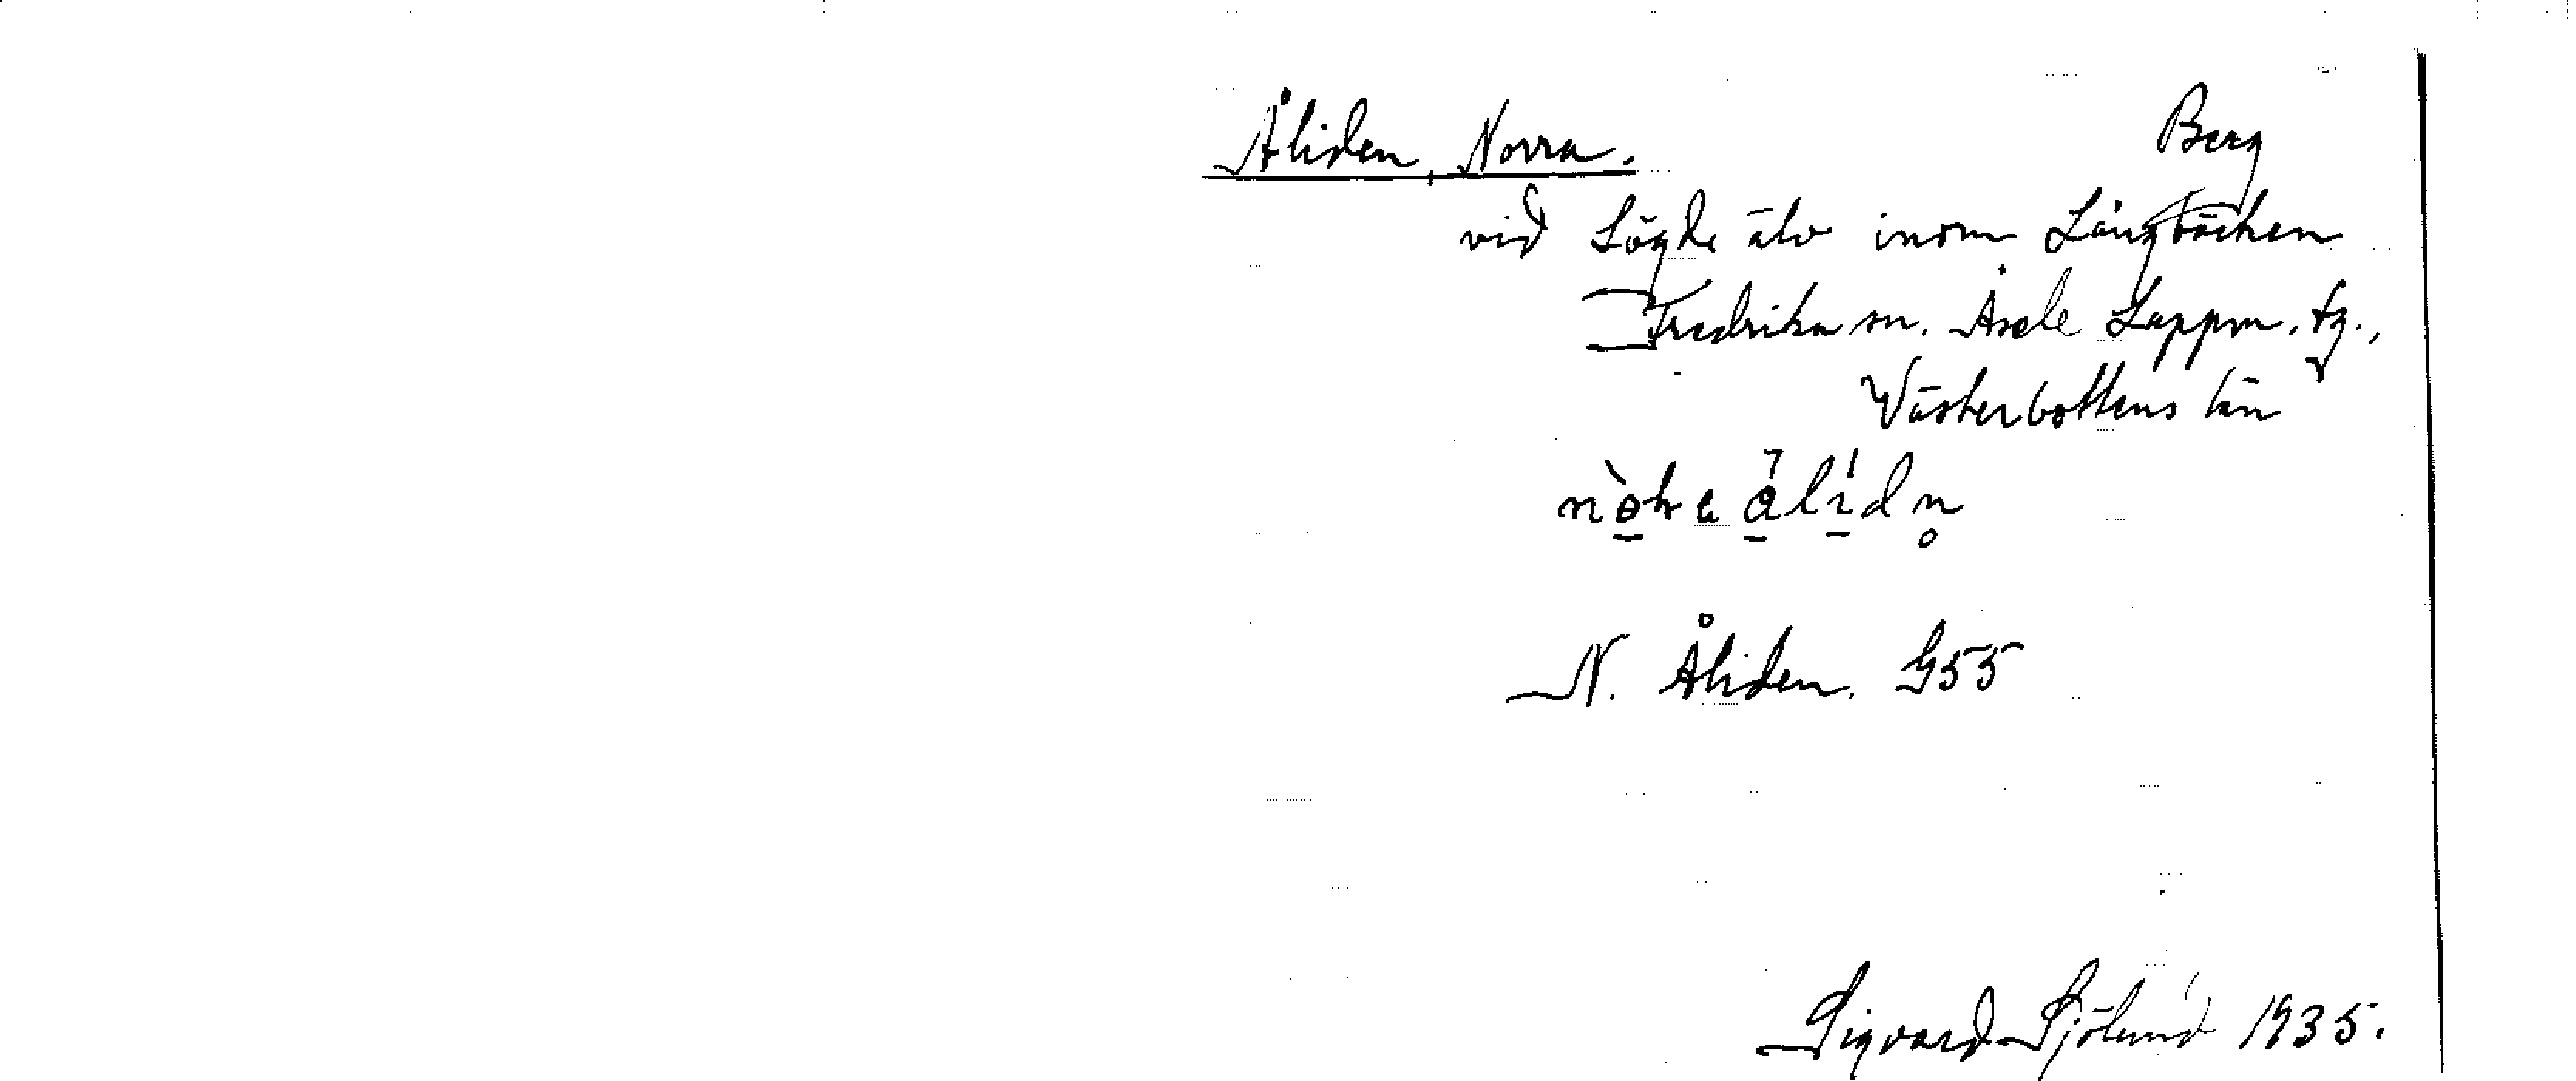 Åliden, Norra. Berg
vid Lögde älv inom Långbäcken
Fredrika sn. Åsele Lappm. tg.,
Västerbottens län
N. Åliden. G55
Sigvard Sjölund 1935.